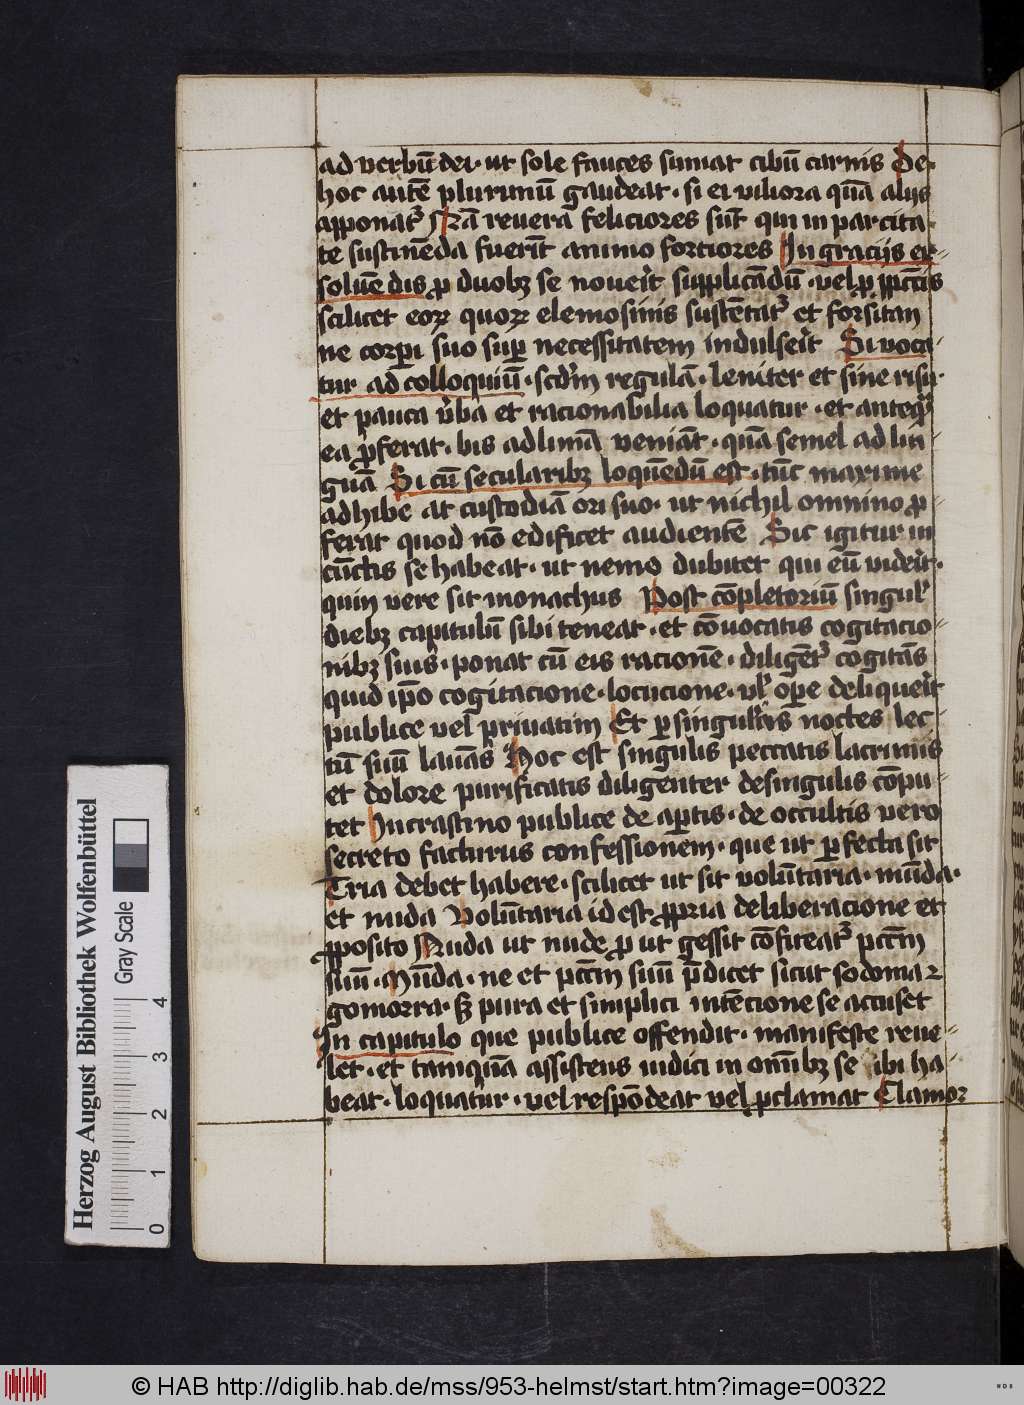 ad verbū dei · ut sole fauces sumat cibū carnis De-
hoc autē plurimū gaudeat · si ei viliora quā alijs
apponat᷑ Nā revera feliciores sūt qui in parcita-
te sustinēda fuerīt animo fortiores In gracijs er-
soluēdis ꝓ duobꝫ se noverit supplicādū · vel ꝓ ꝑctīs
scilicet eoꝝ quoꝝ elemosinis sustētat᷑ et forsitan
ne corpi suo suꝑ necessitatem indulserit Si voca-
tur ad colloquiū · scd̄m regulā · leniter et sine risu ·
et pauca v̄ba et racionabilia loquatur · et anteq̄
ea ꝓferat · bis ad limā veniāt · quā semel ad lin-
guā Si cū secularibꝫ loquēdū est · tūc maxime
adhibeat custodiā ori suo · ut nichil omnino ꝓ-
ferat quod nō edificet audientē Sic igitur in
cūctis se habeat · ut nemo dubitet qui eū viderit ·
quin vere sit monachus Post cōpletoriū singul᷑
diebꝫ capitulū sibi teneat · et cōvocatis cogitacio-
nibꝫ suis · ponat cū eis racionē · diligēt᷑ cogitās
quid ip̄o cogitacione · locucione · vl᷑ oꝑe deliquerit
publice vel privatim Et ꝑ singulas noctes lec-
tū suū lavās Hoc est singulis peccatis lacrimis
et dolore purificatis diligenter de singulis cōpu-
tet In crastino publice de aꝑtis · de occultis vero
secreto facturus confessionem · que ut ꝑfecta sit
Tria debet habere · scilicet ut sit volūtaria · mūda ·
et nuda Volūtaria id est ꝓpria deliberacione et
ꝓposito Nuda ut nude ꝓut gessit cōfiteat᷑ pctm̄
suū · Mūda · ne et pctm̄ suū p̄dicet sicut sodoma ⁊
gomorra · sꝫ pura et simplici intēcione se accuset
In capitulo que publice offendit · manifeste reve-
let · et tamquā assistens iudici in omībꝫ se ibi ha-
beat · loquatur · vel respōdeat vel ꝓclamat Clamor
Herzog August Bibliothek Wolfenbüttel
Gray Scale
0 1 2 3 4
© HAB http://diglib.hab.de/mss/953-helmst/start.htm?image=00322